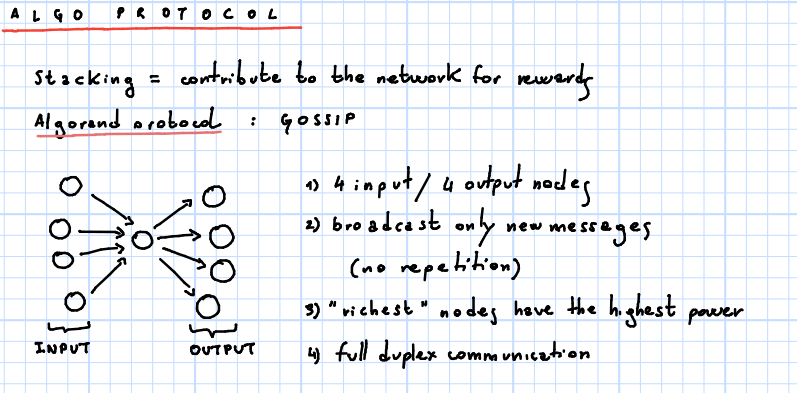 ALGO PROTOCOL
Stacking = contribute to the network for rewards
Algorand protocol : GOSSIP
1) 4 input / 4 output nodes
2) broadcast only new messages
(no repetition)
3) "richest" nodes have the highest power
4) full duplex communication
INPUT
OUTPUT